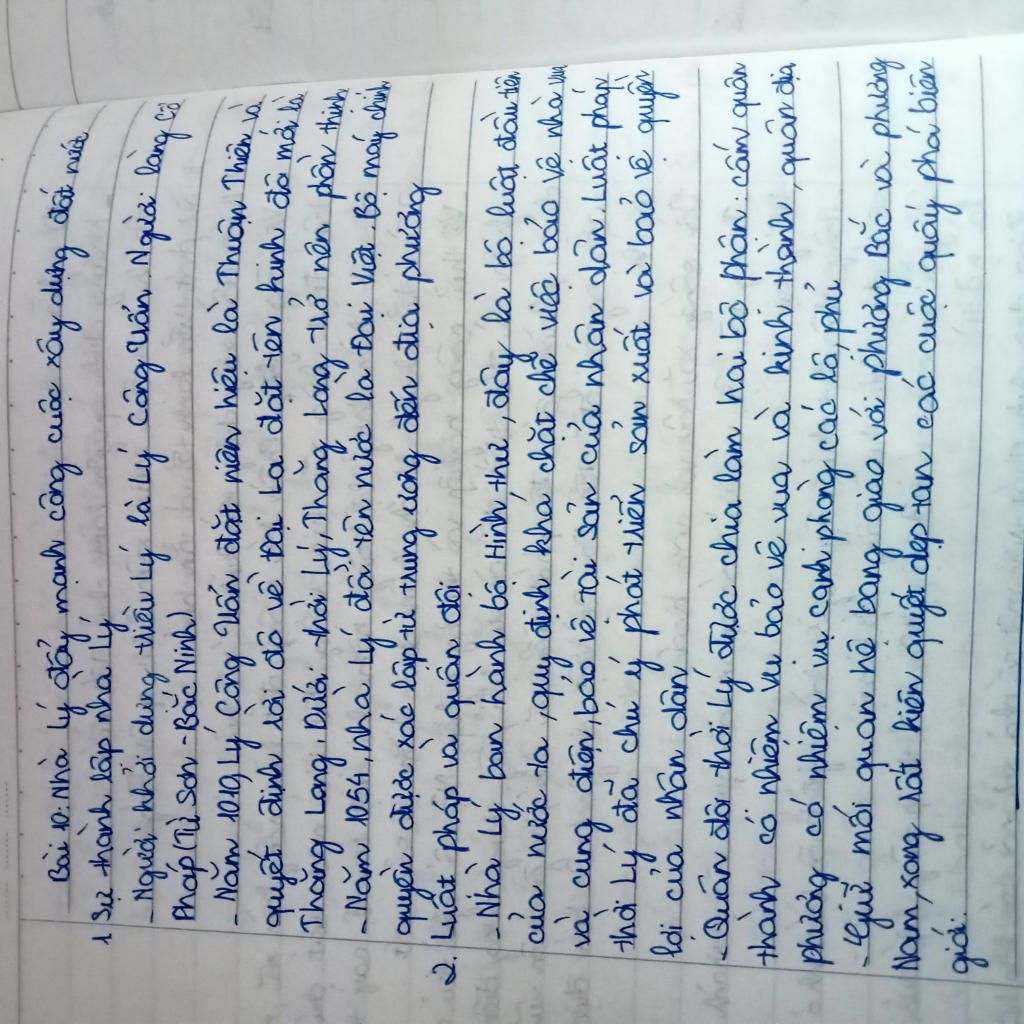 Bài 10: Nhà Lý đẩy mạnh công cuộc xây dựng đất nước
1. Sự thành lập nhà Lý
- Người khởi dựng triều Lý là Lý Công Uẩn. Người làng Cổ
Pháp (Từ Sơn - Bắc Ninh)
- Năm 1010, Lý Công Uẩn đặt niên hiệu là Thuận Thiên và
quyết định dời đô về Đại La đặt tên kinh đô mới là
Thăng Long. Dưới thời Lý, Thăng Long trở nên phồn thịnh
- Năm 1054, nhà Lý đổi tên nước là Đại Việt. Bộ máy chính
quyền được xác lập từ trung ương đến địa phương
2. Luật pháp và quân đội
- Nhà Lý ban hành bộ Hình thư, đây là bộ luật đầu tiên
của nước ta, quy định khá chặt chẽ việc bảo vệ nhà vua
và cung điện, bảo vệ tài sản của nhân dân. Luật pháp
thời Lý đã chú ý phát triển sản xuất và bảo vệ quyền
lợi của nhân dân
- Quân đội thời Lý được chia làm hai bộ phận: cấm quân
thành có nhiệm vụ bảo vệ vua và kinh thành, quân địa
phương có nhiệm vụ canh phòng các lộ phủ
- Giữ mối quan hệ bang giao với phương Bắc và phương
Nam, xong rất kiên quyết dẹp tan các cuộc quấy phá biên
giới.